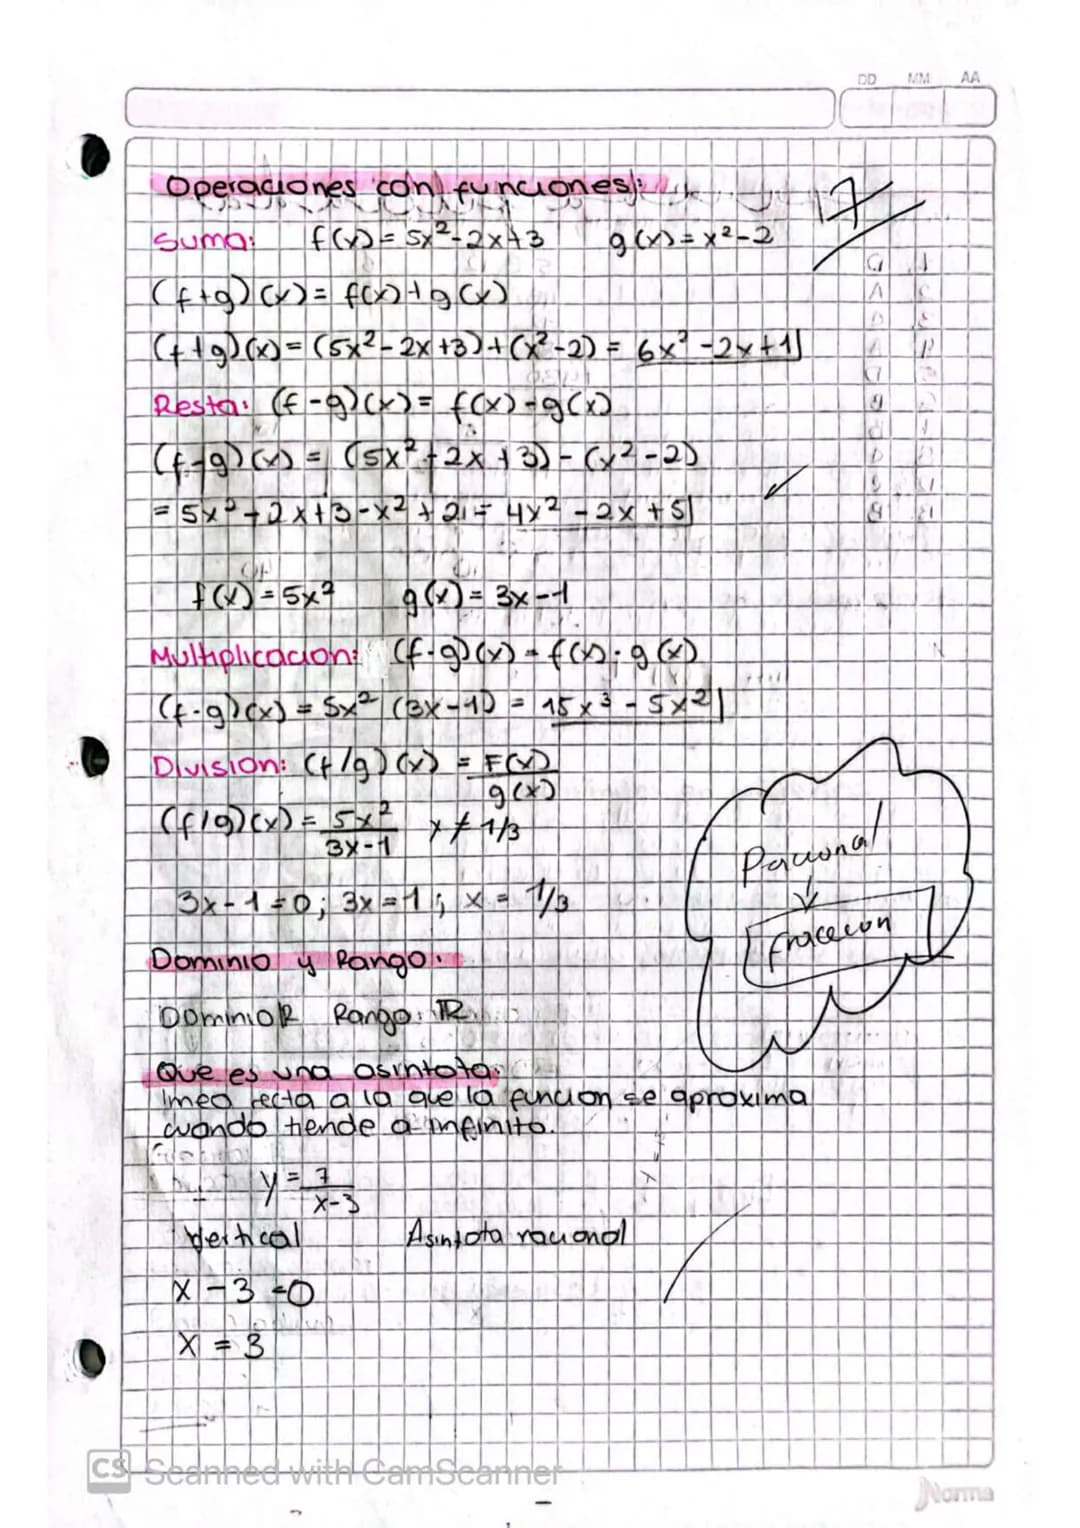 DD MM AA
Operaciones con funciones:
17
Suma: f(x) = 5x² - 2x + 3 g(x) = x² - 2
(f+g)(x) = f(x) + g(x)
(f+g)(x) = (5x² - 2x + 3) + (x² - 2) = 6x² - 2x + 1
Resta: (f-g)(x) = f(x) - g(x)
(f-g)(x) = (5x² - 2x + 3) - (x² - 2)
= 5x² - 2x + 3 - x² + 2 = 4x² - 2x + 5
f(x) = 5x² g(x) = 3x - 1
Multiplicacion: (f·g)(x) = f(x) · g(x)
(f·g)(x) = 5x² (3x-1) = 15x³ - 5x²
Division: (f/g)(x) = F(x)/g(x)
(f/g)(x) = 5x²/3x-1 x ≠ 1/3
3x - 1 = 0; 3x = 1; x = 1/3
Racional
↓
fraccion
Dominio y Rango:
Dominio ℝ Rango: ℝ
Que es una asintota:
linea recta a la que la funcion se aproxima
cuando tiende a infinito.
y = 7/x-3
Vertical Asintota racional
x - 3 = 0
x = 3
CS Scanned with CamScanner
Norma